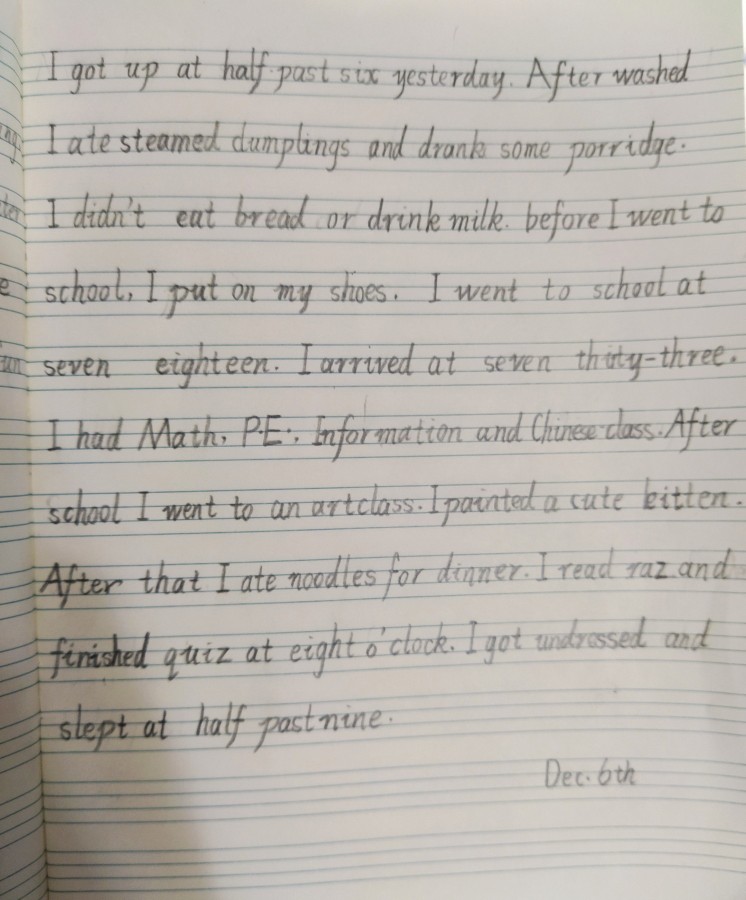 I got up at half past six yesterday. After washed
I ate steamed dumplings and drank some porridge.
I didn't eat bread or drink milk. before I went to
school, I put on my shoes. I went to school at
seven eighteen. I arrived at seven thirty-three.
I had Math, P.E., Information and Chinese class. After
school I went to an art class. I painted a cute kitten.
After that I ate noodles for dinner. I read raz and
finished quiz at eight o'clock. I got undressed and
slept at half past nine.
Dec. 6th